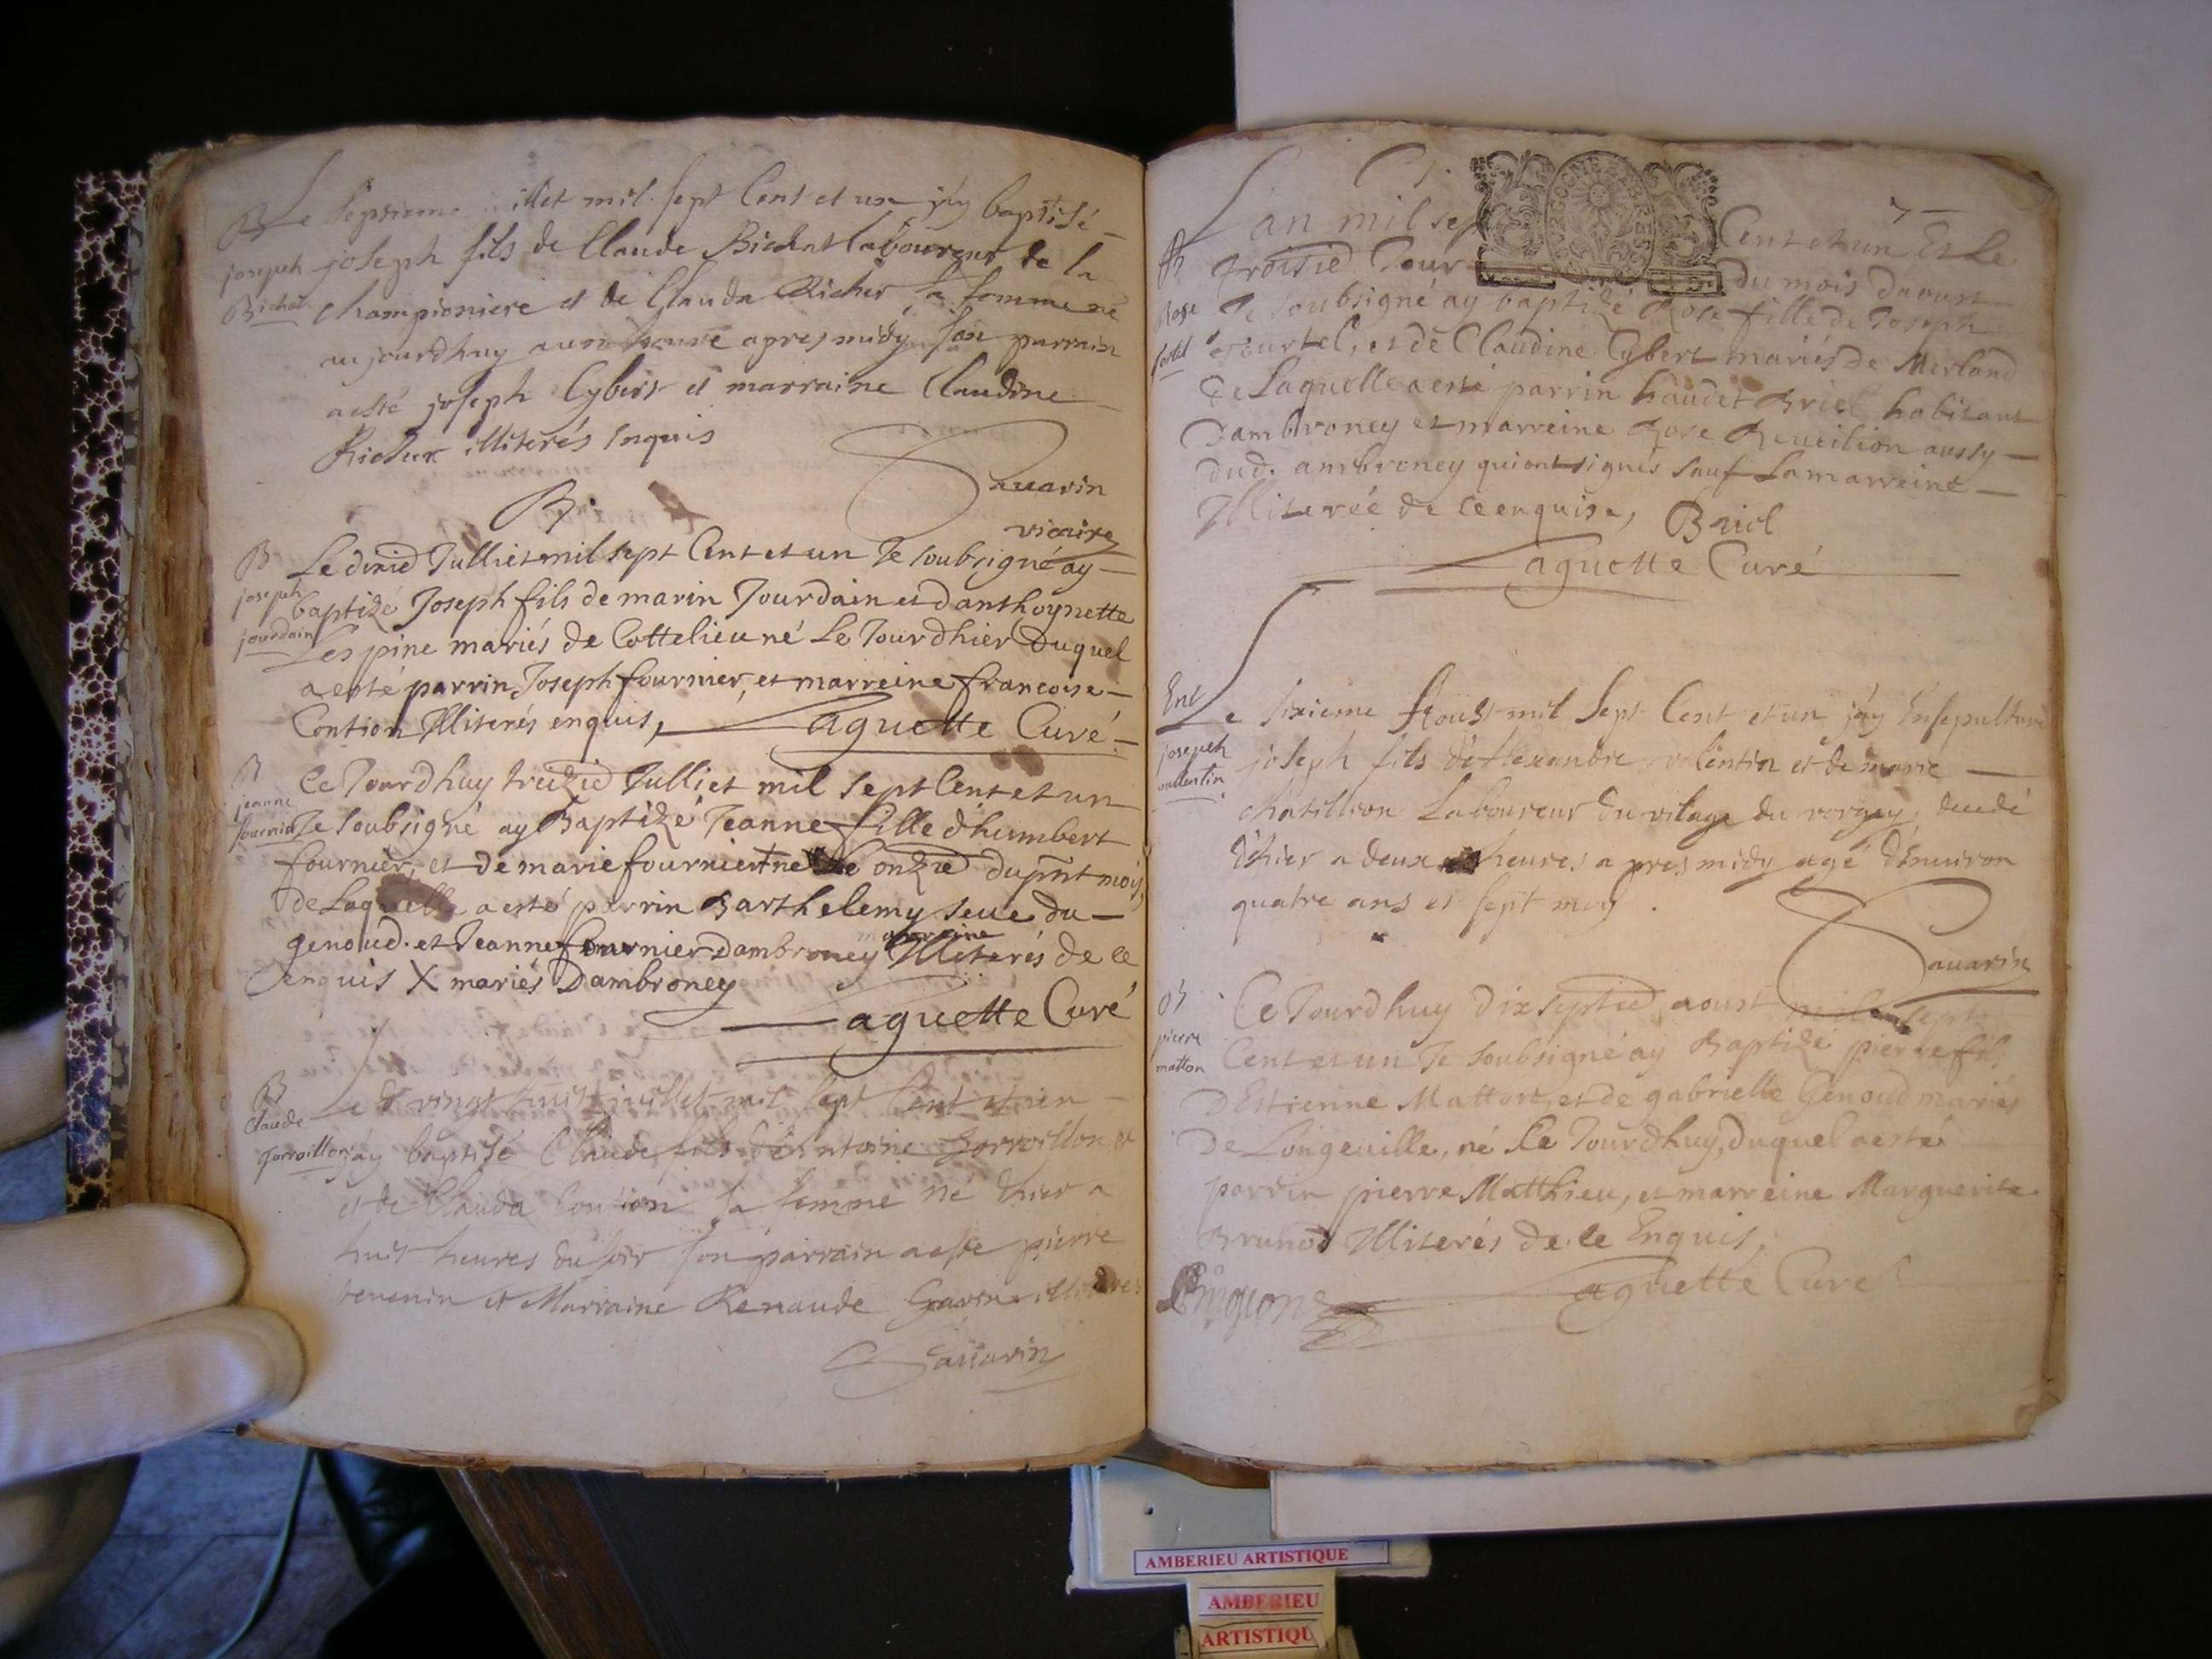 Le septieme illet mil sept Cent et un j'ay baptisé
B
joseph
Bichat
joseph fils de Claude Bichat laboureur de la
championiere et de Clauda Richer sa femme né
aujourdhuy a une heure apres midy son parrain
a esté joseph Cybert et marraine Claudine
Richer illiterés enquis
Savarin
vicaire
B.
B
joseph
jourdain
Le dixie Julliet mil sept Cent et un Je soubsigné ay
baptizé Joseph fils de marin Jourdain et danthoynette
Lespine mariés de Cottelieu né Le Jourdhier Duquel
a esté parrin Joseph fournier, et marreine francoise
Contion Illiterés enquis, Laguette Curé
B
jeanne
fournier
Ce Jourdhuy treizie Julliet mil sept Cent et un
Je soubsigné ay Baptizé Jeanne fille dhumbert
fournier, et de marie fournier + née Le onzie du pnt mois
de Laquelle a esté parrin Barthelemy seve du
genoud. et Jeanne fournier Dambroney marreine Illiterés de ce
enquis X mariés Dambroney
Laguette Curé
B
Claude
jorroillon
Le vingt huit juillet mil sept Cent et un
j'ay baptisé Claude fils d'Antoine Jorroillon et
et de Clauda Contion sa femme né dhier a
huit heures du soir son parrain a esté pierre
tenenin et Marraine Renaude Gavin illiteres
Savarin
7
L'an mil sept Cent et un Et le
troisie Jour du mois Daoust
B
Rose
Je soubsigné ay baptizé Rose fille de Joseph
tourtel, et de Claudine Cybert mariés de Merland
De Laquelle a esté parrin haudet Briel habitant
Dambroney et marreine Rose Reucilion aussy
dud. ambroney qui ont signés sauf La marreine
Illiterée de ce enquise, Briel
Laguette Curé
Ent
joseph
vallentin
Le sixieme Aoust mil sept Cent et un j'ay Ensepulturé
joseph fils d'Alexandre valentin et de marie
chatillion Laboureur du vilage du vorgey decedé
d'hier a deux heures apres midy agé d'enuiron
quatre ans et sept moys.
Savarin
B
pierre
matton
Ce Jourdhuy dix septie aoust mil sept
Cent et un Je soubsigné ay Baptizé pierre fils
D Estienne Matton, et de gabrielle Genoud mariés
De Longeuille, né Ce Jourdhuy, duquel a esté
parrin pierre Matthieu, et marreine Marguerite
Brunod Illiterés de ce Enquis,
Laguette Curé
AMBERIEU ARTISTIQUE
AMBERIEU
ARTISTIQU